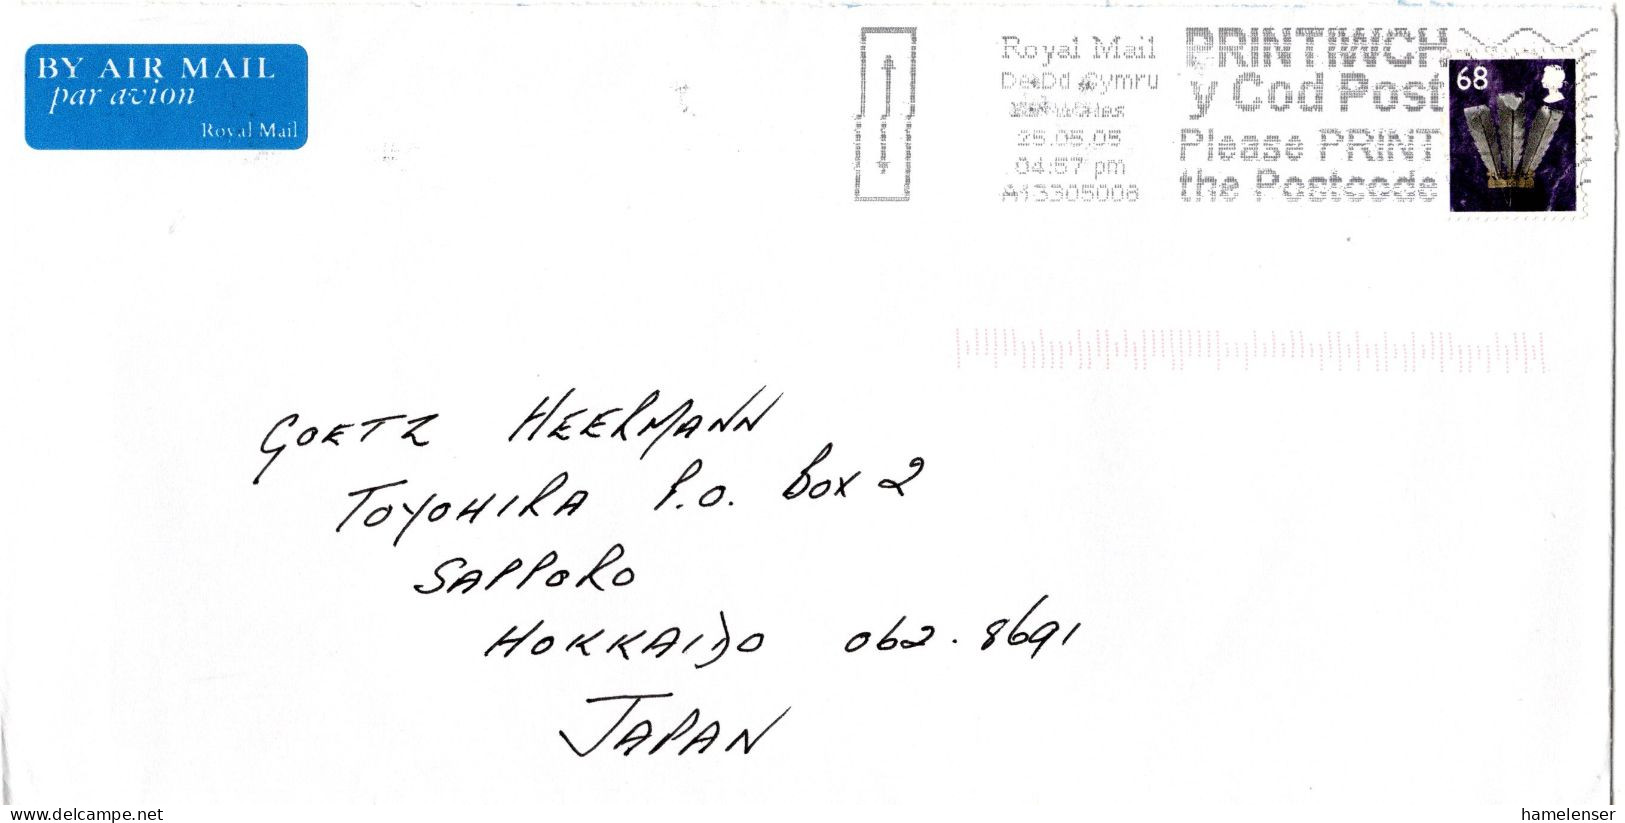 BY AIR MAIL
par avion
Royal Mail
Royal Mail
De Dd Cymru
04:57 pm
A13305008
PRINTIWCH
y Cod Post
Please PRINT
the Postcode
68
GOETZ HEERMANN
TOYOHIRA P.O. BOX 2
SAPPORO
HOKKAIDO 062.8691
JAPAN
hamelenser